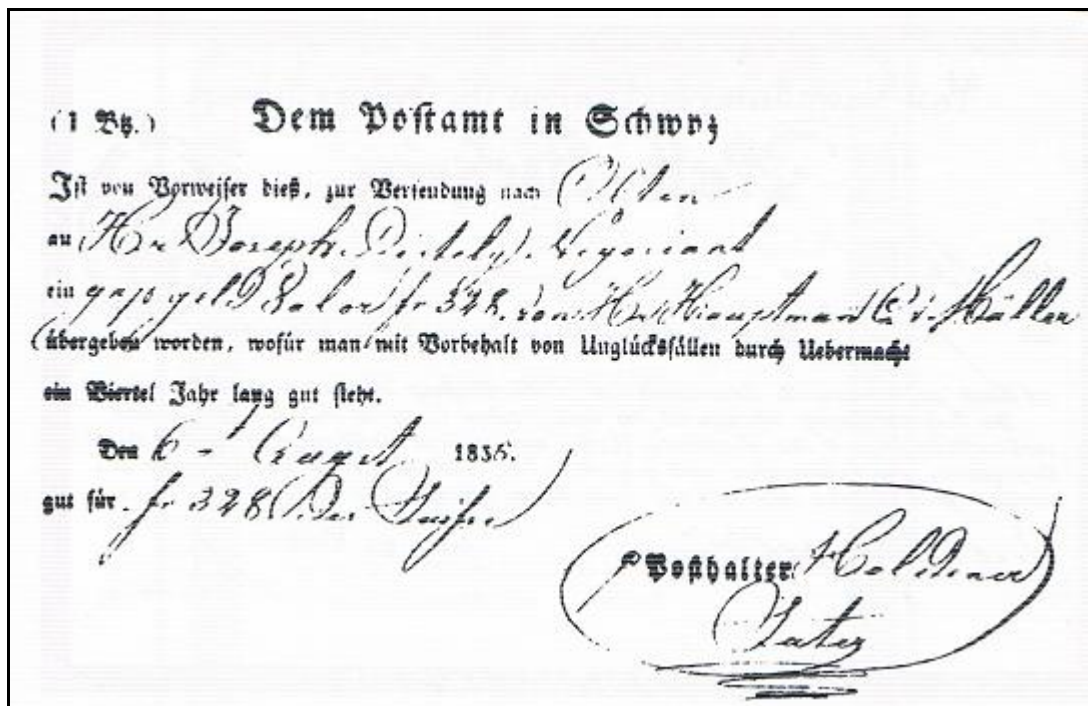 (1 Btz.) Dem Postamt in Schwyz
Ist von Vorweiser dieß, zur Versendung nach Olten
an Hr Joseph Negoziant
ein Valor fr 328. von Hr Hauptmann Müller
übergeben worden, wofür man mit Vorbehalt von Unglücksfällen durch Uebermacht
ein Viertel Jahr lang gut steht.
Den 6 - August 1836.
gut für fr 328
p Posthalter Holdener